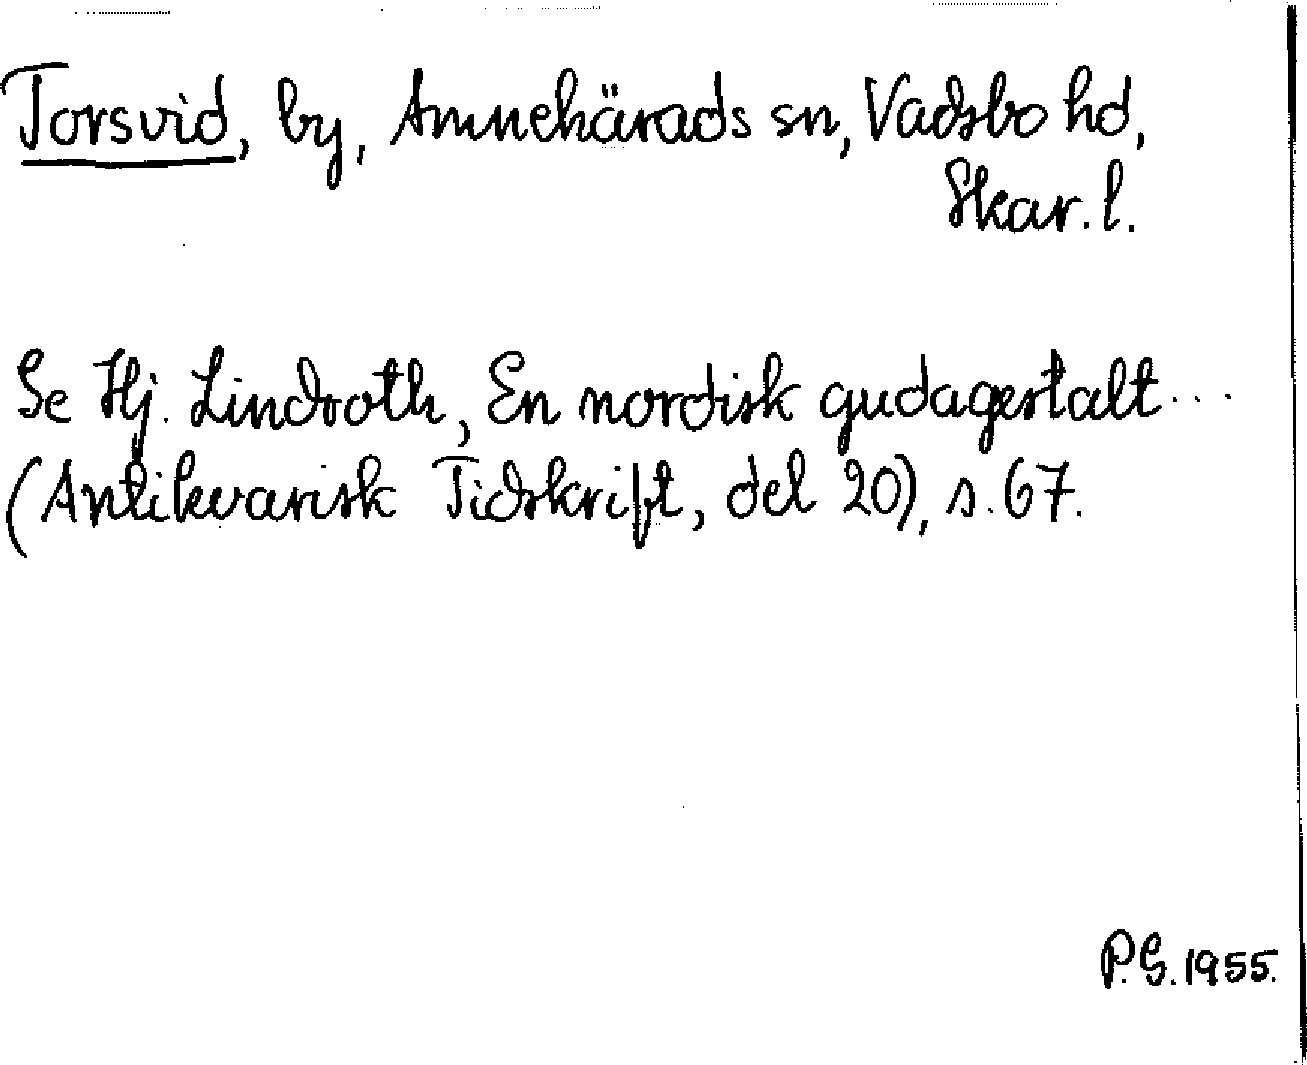 Torsvid, by, Amnehärads sn, Vadsbo hd,
Skar. l.
Se Hj. Lindroth, En nordisk gudagestalt...
(Antikvarisk Tidskrift, del 20), s. 67.
P.G. 1955.